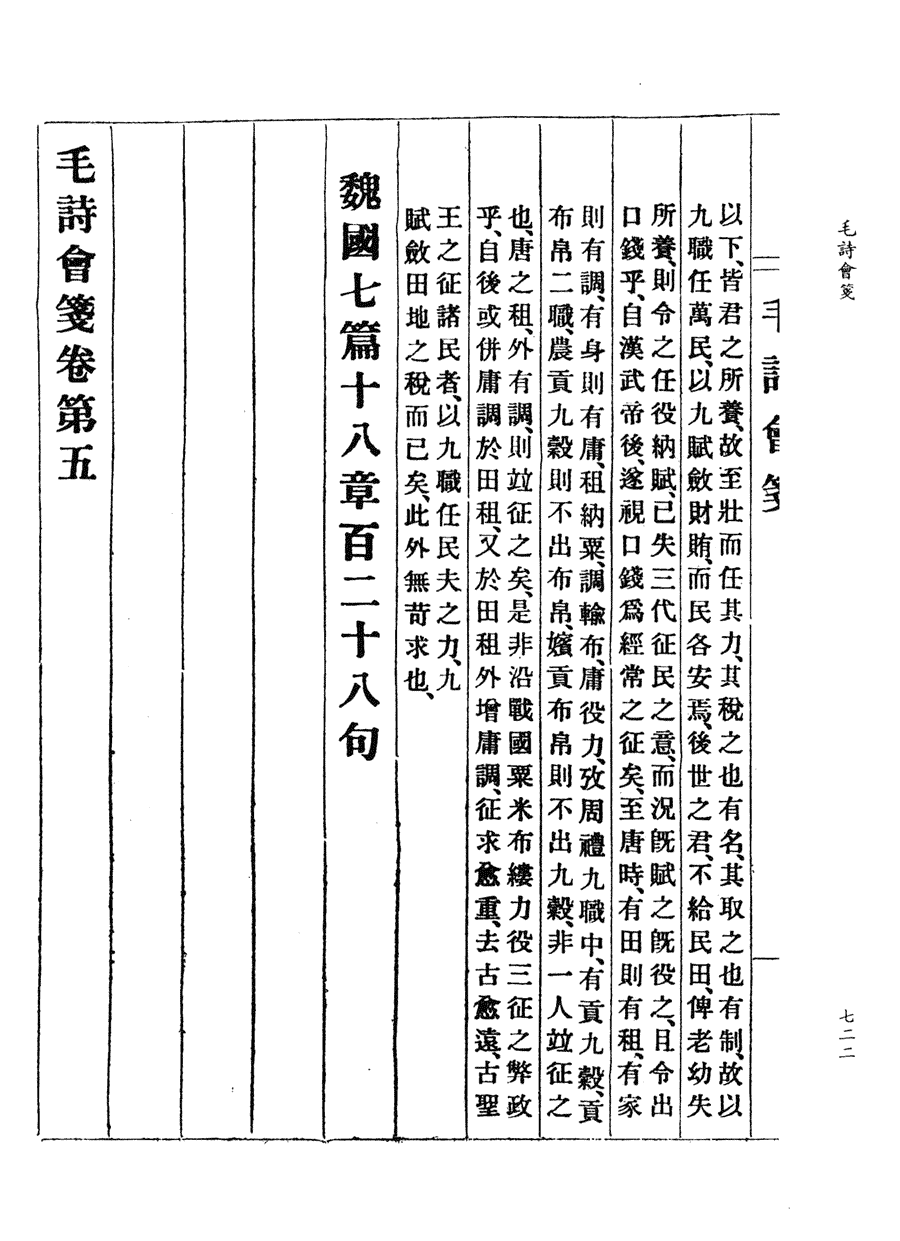 毛詩會箋
七二二
毛詩會箋
以下、皆君之所養、故至壯而任其力、其稅之也有名、其取之也有制、故以
九職任萬民、以九賦斂財賄、而民各安焉、後世之君、不給民田、俾老幼失
所養、則令之任役納賦、已失三代征民之意、而況既賦之既役之、且令出
口錢乎、自漢武帝後、遂視口錢爲經常之征矣、至唐時、有田則有租、有家
則有調、有身則有庸、租納粟、調輸布、庸役力、攷周禮九職中、有貢九穀、貢
布帛二職、農貢九穀則不出布帛、嬪貢布帛則不出九穀、非一人竝征之
也、唐之租、外有調、則竝征之矣、是非沿戰國粟米布縷力役三征之弊政
乎、自後或併庸調於田租、又於田租外增庸調、征求愈重、去古愈遠、古聖
王之征諸民者、以九職任民夫之力、九
賦斂田地之稅而已矣、此外無苛求也、
魏國七篇十八章百二十八句
毛詩會箋卷第五